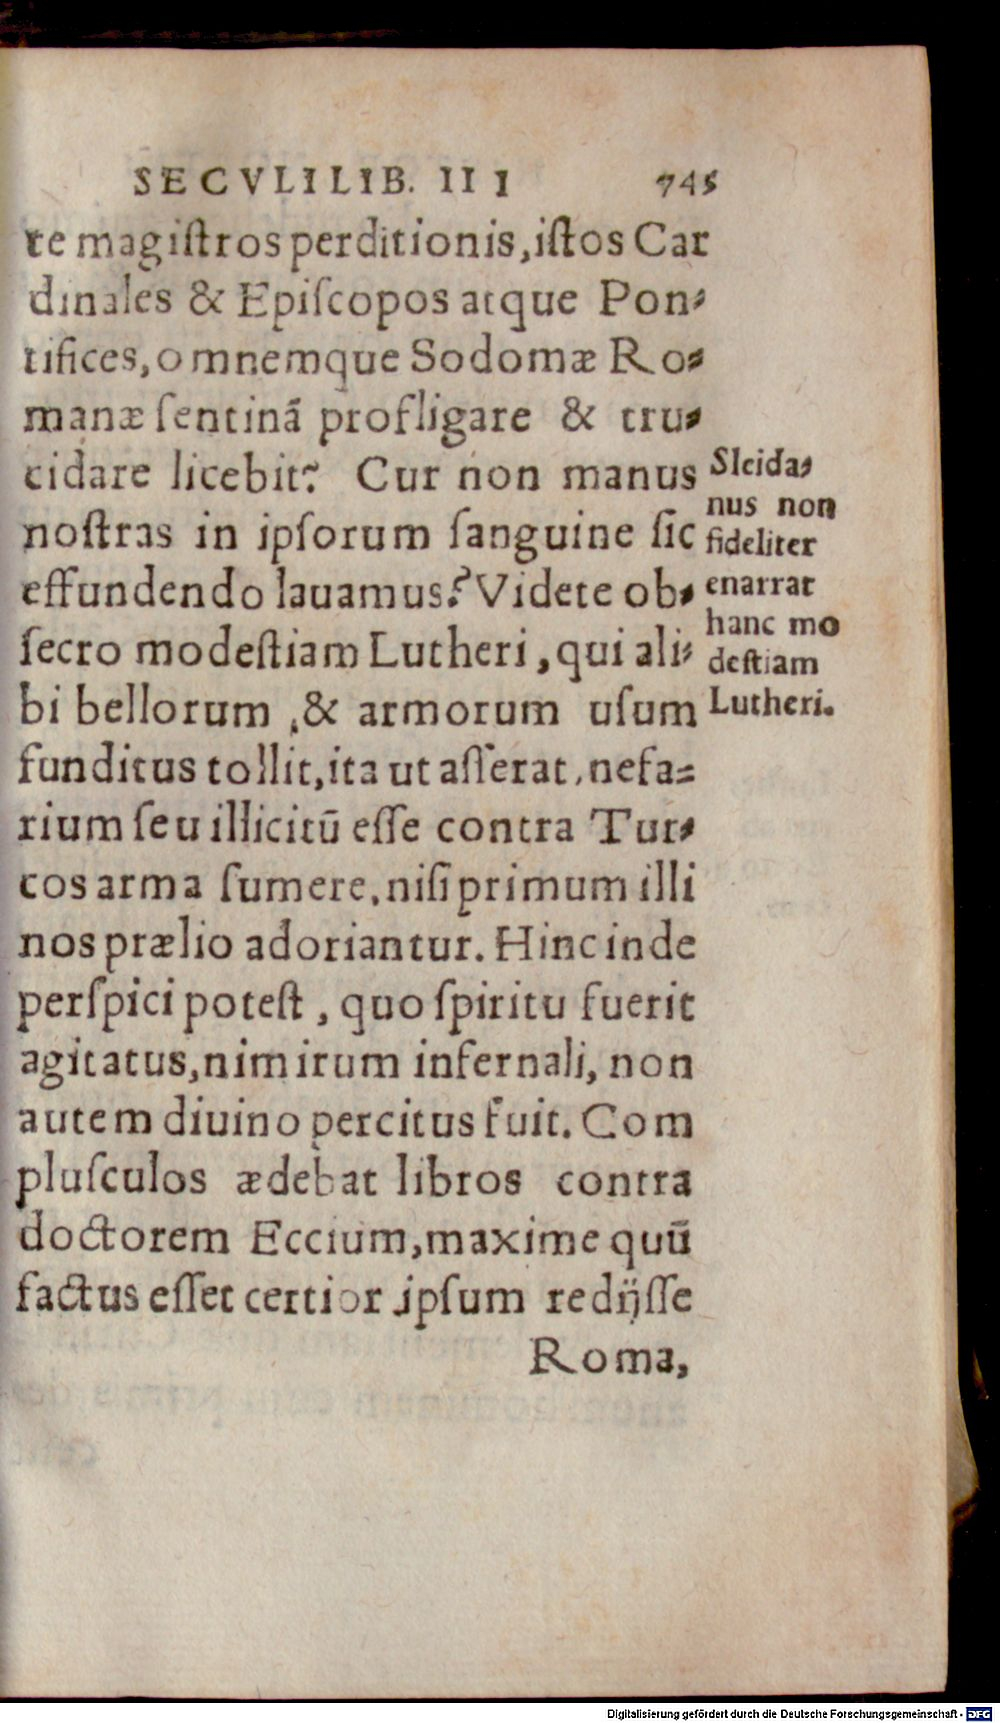 SECVLI LIB. III 745
te magiſtros perditionis, iſtos Car
dinales & Epiſcopos atque Pon-
tifices, omnemque Sodomæ Ro-
manæ ſentinā profligare & tru-
cidare licebit? Cur non manus
noſtras in ipſorum ſanguine ſic
effundendo lauamus? Videte ob-
ſecro modeſtiam Lutheri, qui ali-
bi bellorum, & armorum uſum
funditus tollit, ita ut aſſerat, nefa-
rium ſeu illicitū eſſe contra Tur-
cos arma ſumere, niſi primum illi
nos prælio adoriantur. Hinc inde
perſpici poteſt, quo ſpiritu fuerit
agitatus, nimirum infernali, non
autem diuino percitus fuit. Com
pluſculos ædebat libros contra
doctorem Eccium, maxime quū
factus eſſet certior ipſum redijſſe
Roma,
Sleida-
nus non
fideliter
enarrat
hanc mo
deſtiam
Lutheri.
Digitalisierung gefördert durch die Deutsche Forschungsgemeinschaft - DFG